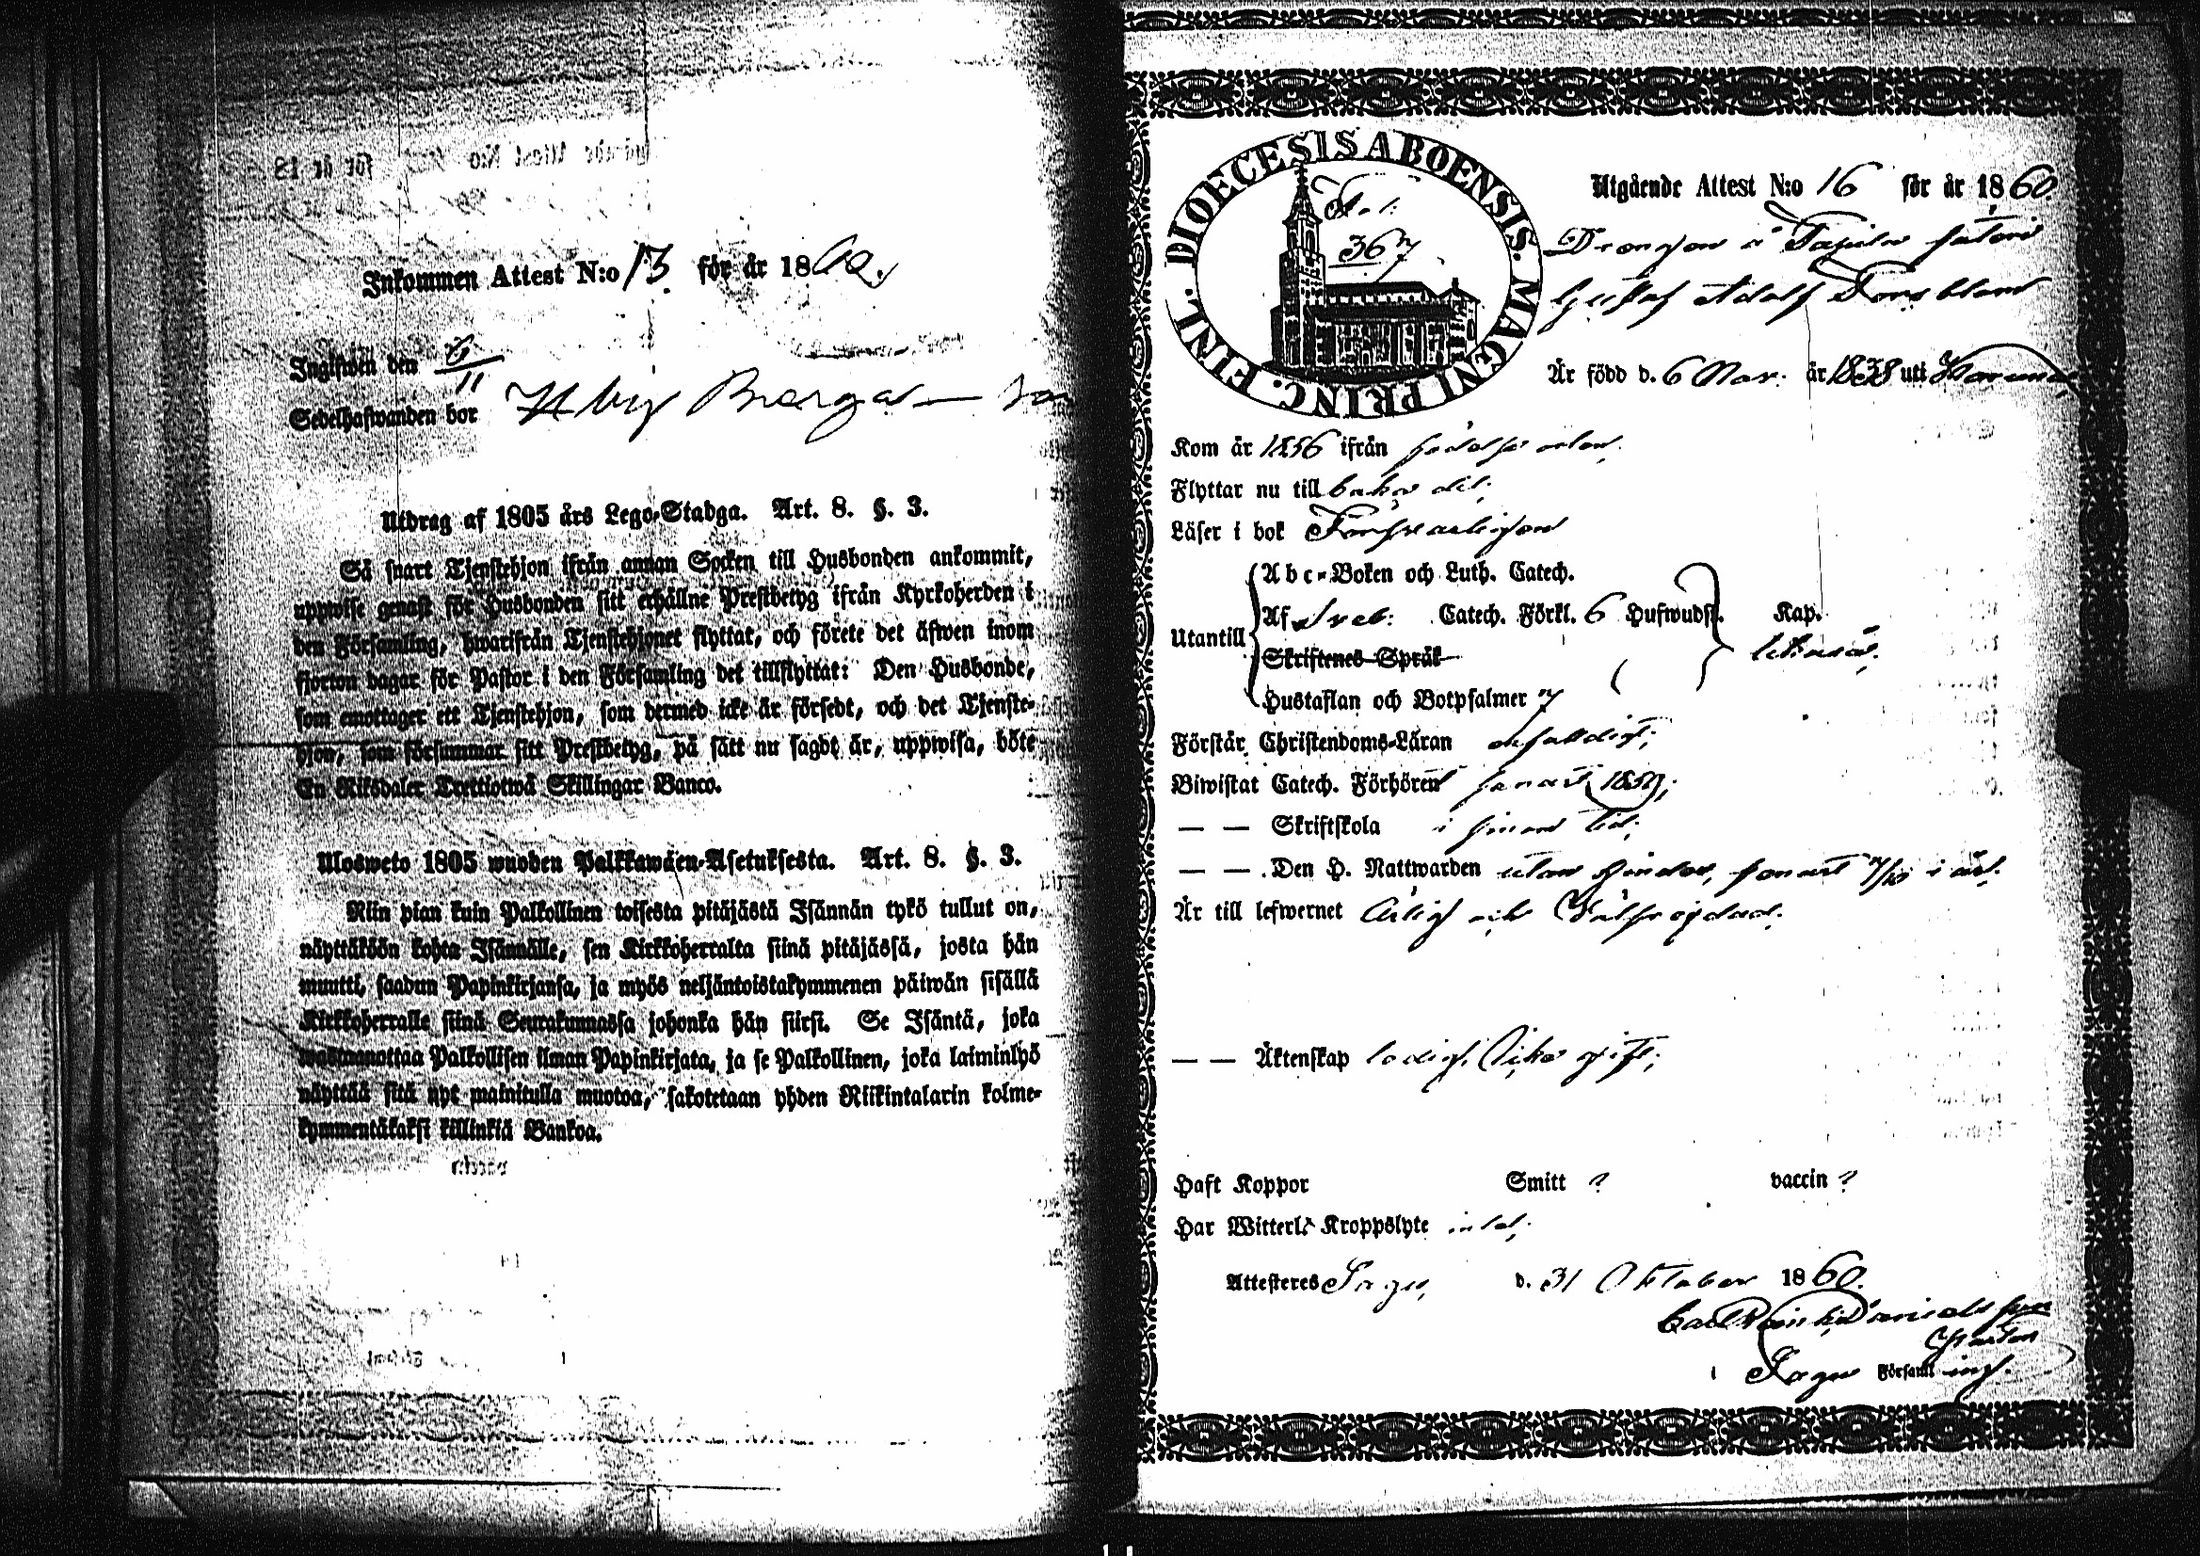 Inkommen Attest N:o 13. för år 1860.
Ingifwen den 6/11
Sedelhafwanden bor
Utdrag af 1805 års Lego-Stadga. Art. 8. §. 3.
Så snart Tjenstehjon ifrån annan Socken till Husbonden ankommit,
uppwise genast för Husbonden sitt erhållne Prestbetyg ifrån Kyrkoherden i
den Församling, hwarifrån Tjenstehjonet flyttat, och förete det äfwen inom
fjorton dagar för Pastor i den Församling det tillflyttat: Den Husbonde,
som emottager ett Tjenstehjon, som dermed icke är försedt, och det Tjenste-
hjon, som försummar sitt Prestbetyg, på sätt nu sagdt är, uppwisa, böte
En Riksdaler Trettiotwå Skillingar Banco.
Ulosweto 1805 wuoden Palkkawäen-Asetuksesta. Art. 8. §. 3.
Niin pian kuin Palkollinen toisesta pitäjästä Isännän tykö tullut on,
näyttäköön kohta Isännälle, sen Kirkkoherralta siinä pitäjässä, josta hän
muutti, saadun Papinkirjansa, ja myös neljäntoistakymmenen päiwän sisällä
Kirkkoherralle siinä Seurakunnassa johonka hän siirsi. Se Isäntä, joka
wastaanottaa Palkollisen ilman Papinkirjata, ja se Palkollinen, joka laiminlyö
näyttää sitä nyt mainitulla muotoa, sakotetaan yhden Riikintalarin kolme-
kymmentäkaksi killinkiä Bankoa.
DIOECESIS ABOENSIS. MAGNI PRINC. FINL.
Fol:
367
Utgående Attest N:o 16 för år 1860.
Drängen å
Gustaf Adolf
Är född d. 6 Nov: år 1838 uti
Kom år 1856 ifrån födelseorten;
Flyttar nu till baka dit;
Läser i bok Förswarligen
Abc-Boken och Luth. Catech.
Af Sveb: Catech. Förkl. 6 Hufwudst. Kap.
Utantill
Skriftenes Språk
Hustaflan och Botpsalmer 7
Förstår Christendoms-Läran enfaldigt;
Biwistat Catech. Förhören senast 1859;
— — Skriftskola i sinom tid;
— — Den H. Nattwarden utan hinder, senast 7/10 i år.
Är till lefwernet Ärlig och Välfrejdad.
— — Äktenskap ledig, icke gift;
Haft Koppor Smitt ? vaccin ?
Har Witterl. Kroppslyte intet;
Attesteras Sagu, d. 31 Oktober 1860.
Pastor
i Sagu Församling.